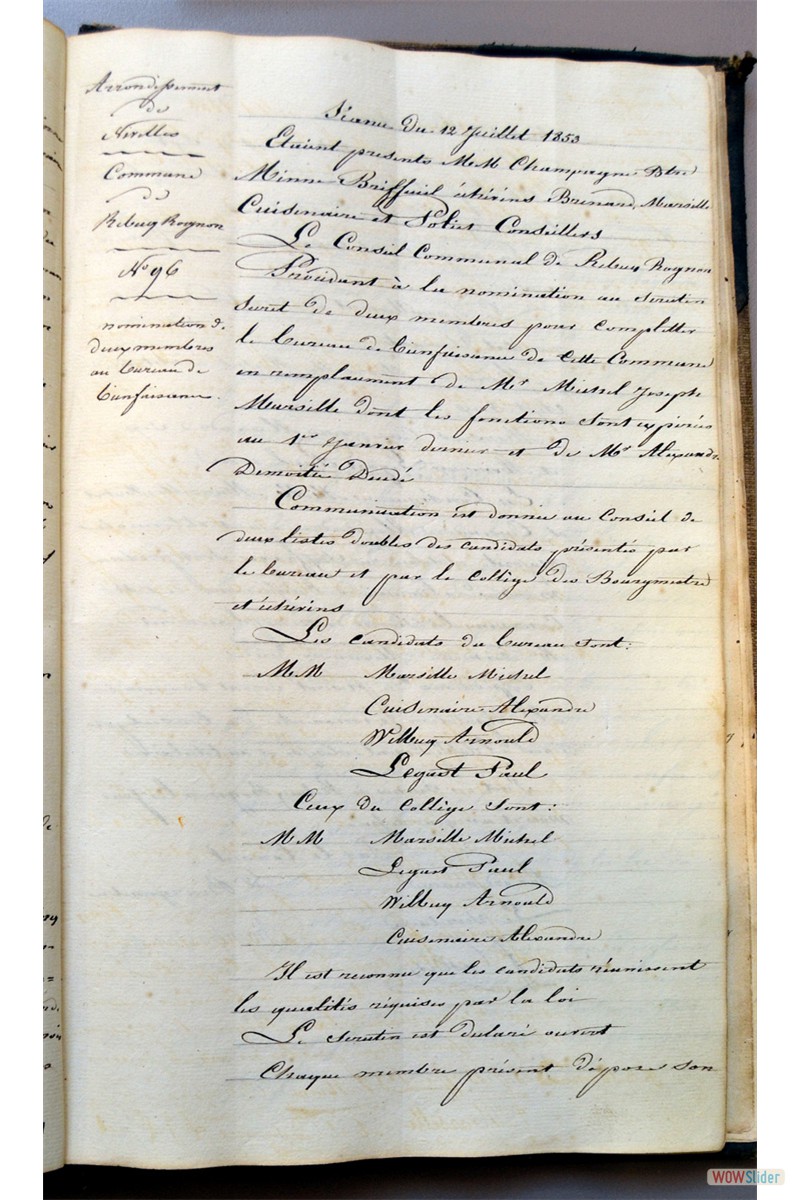 Arrondissement
de
Nivelles
Commune
de
Rebecq Rognon
N° 96
nomination de
deux membres
au bureau de
bienfaisance.
Séance du 12 Juillet 1853
Etaient présents MM Champagne Btre
Minne Briffeuil échévins Brenard, Marsille
Cuisenaire et Conseillers
Le Conseil Communal de Rebecq Rognon
Procédant à la nomination au scrutin
secret de deux membres pour completter
le bureau de bienfaisance de cette Commune
en remplacement de Mr Michel Joseph
Marsille dont les fonctions sont expirées
au 1er Janvier dernier et de Mr Alexandre
Demoitié Décédé
Communication est donnée au Conseil de
deux listes doubles des candidats présentés par
le bureau et par le collège des Bourgmestre
et échévins
Les candidats du bureau sont:
MM Marsille Michel
Cuisenaire Alexandre
Wilbecq Arnould
Legast Paul
Ceux du collège sont:
MM Marsille Michel
Legast Paul
Wilbecq Arnould
Cuisenaire Alexandre
Il est reconnu que les candidats réunissent
les qualités réquises par la loi
Le scrutin est déclaré ouvert
Chaque membre présent dépose son
WOWSlider